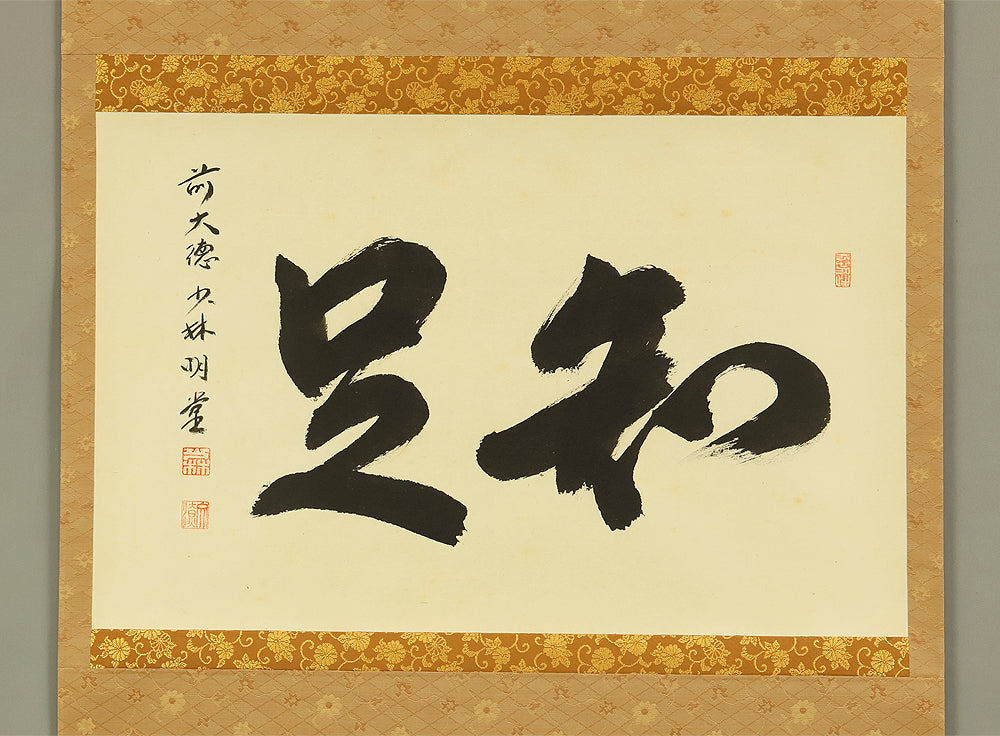 知足
前大徳 少林明堂